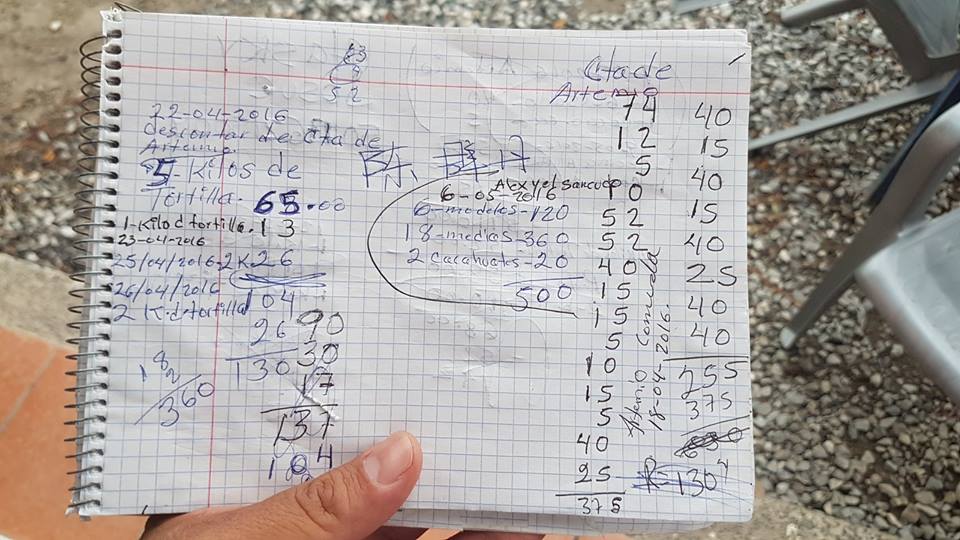 13
9
52
22-04-2016
descontar de Cta de
Artemio.
5-Kilos de
Tortilla. 65.00
1-Kilo d tortilla. 13
23-04-2016
25/04/2016-2K 26
26/04/2016
2 K. d tortilla
104
26
130
90
30
17
137
104
18
360
Alex y el Sancudo
6-05-2016
6-modelos-120
18-medias-360
2 Cacahuates-20
500
Cta de
Artemio
74
12
5
10
52
52
40
15
15
5
10
15
5
40
25
375
Artemio Comida
18-04-2016.
40
15
40
15
40
25
40
40
255
375
130